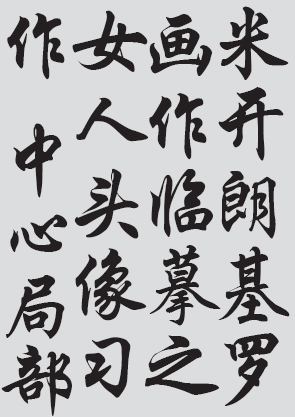 米开朗基罗
画作临摹之
女人头像习
作 中心局部